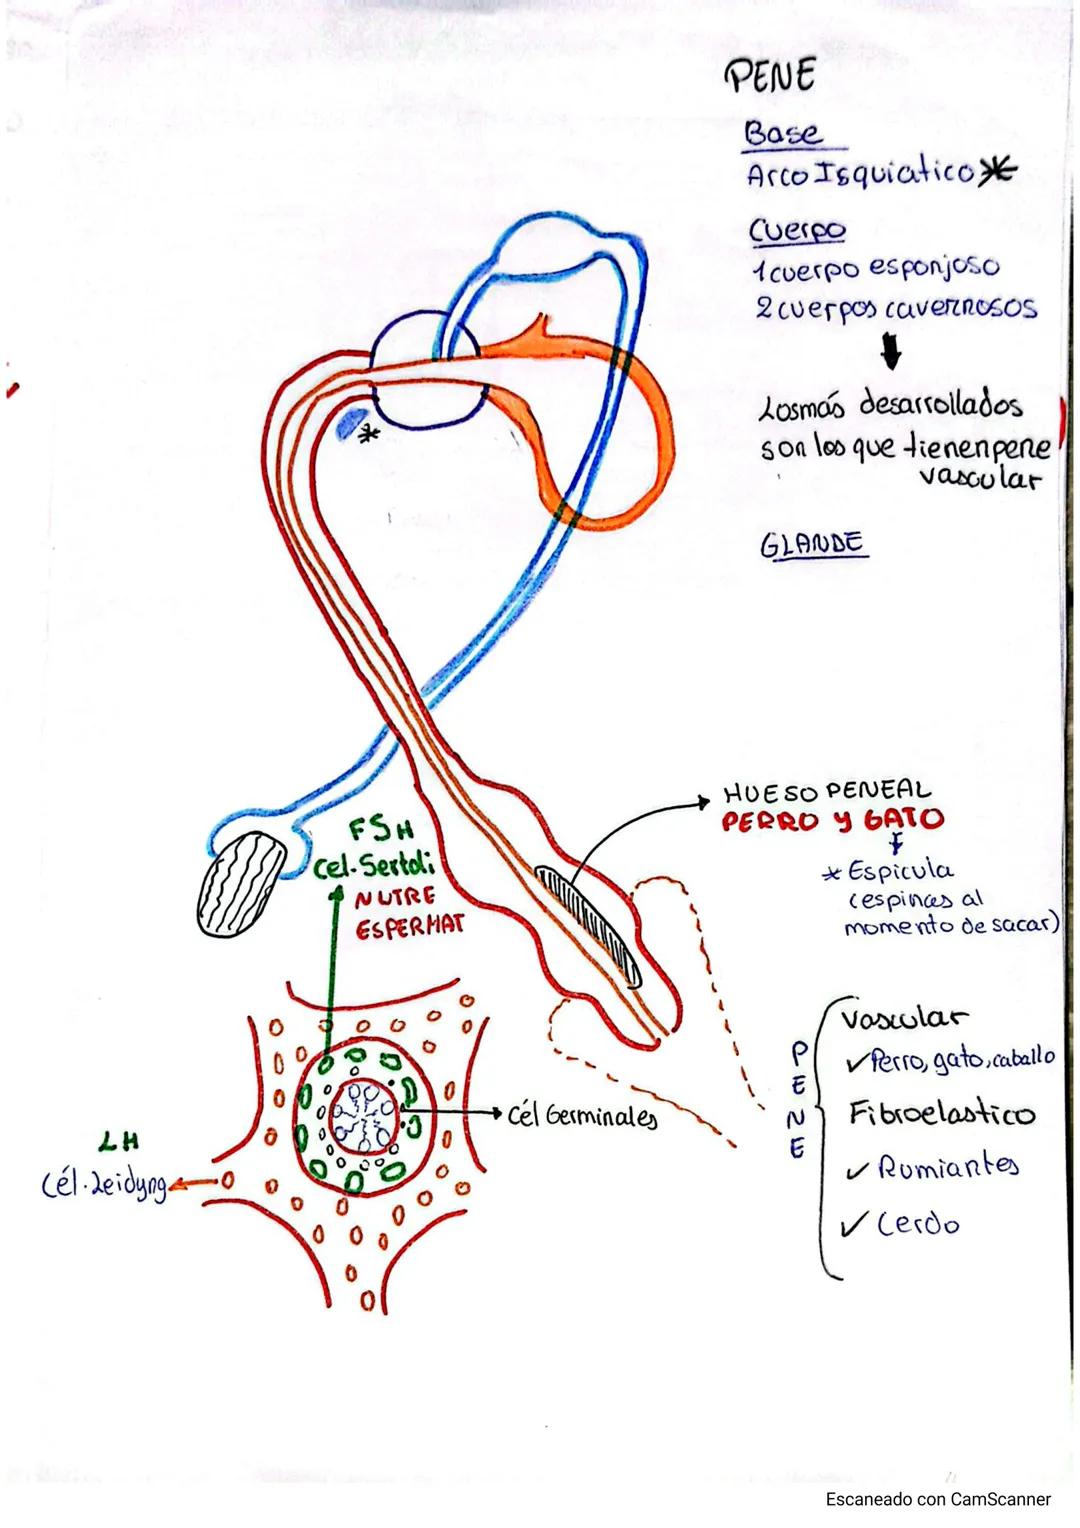 PENE
Base
Arco Isquiatico*
Cuerpo
1 cuerpo esponjoso
2 cuerpos cavernosos
Los más desarrollados
son los que tienen pene
vascular
GLANDE
*
HUESO PENEAL
PERRO Y GATO
* Espicula
(espinas al
momento de sacar)
FSH
Cel. Sertoli
NUTRE
ESPERMAT
Cél Germinales
LH
Cél. Leidyng
PENE
Vascular
✓ Perro, gato, caballo
Fibroelastico
✓ Rumiantes
✓ Cerdo
Escaneado con CamScanner